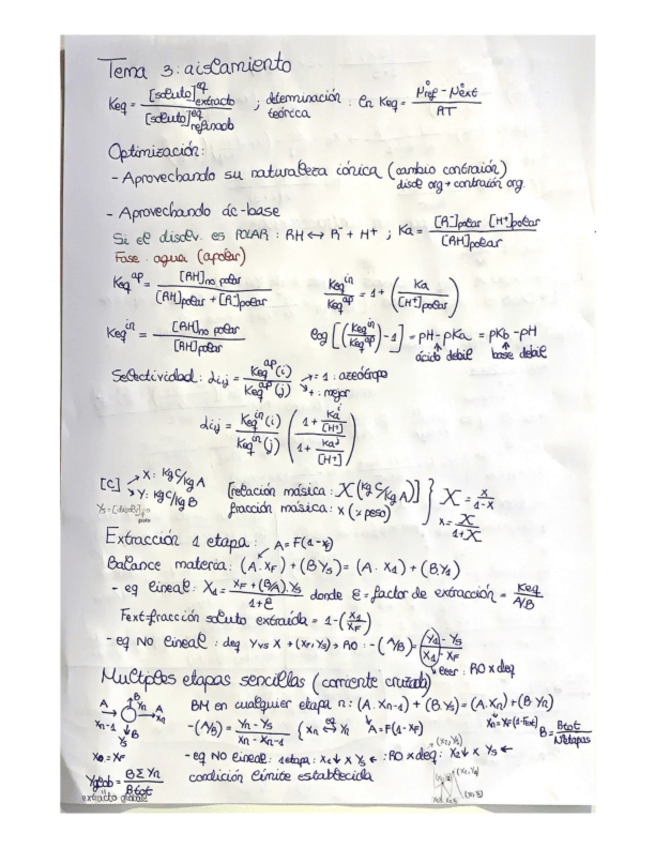 Tema 3: aislamiento
Keq = [soluto]^eq extracto / [soluto]^eq refinado ; determinación teórica : Ln Keq = (μ°ref - μ°ext) / RT
Optimización:
- Aprovechando su naturaleza iónica (cambio contraión)
disolv org + contraión org.
- Aprovechando ác-base
Si el disolv. es POLAR : RH ↔ R⁻ + H⁺ ; Ka = [R⁻]polar [H⁺]polar / [RH]polar
Fase: agua (apolar)
Keq^ap = [RH]no polar / ([RH]polar + [R⁻]polar)
Keq^in / Keq^ap = 1 + (Ka / [H⁺]polar)
Keq^in = [RH]no polar / [RH]polar
log [(Keq^in / Keq^ap) - 1] = pH - pKa = pKb - pH
ácido debil base debil
Selectividad: αi,j = Keq^ap (i) / Keq^ap (j) → = 1 : azeótropo
→ + : mejor
αi,j = Keq^in (i) / Keq^in (j) ((1 + Ka^i / [H⁺]) / (1 + Ka^j / [H⁺]))
[C] → X: kg C/kg A
→ Y: kg C/kg B
[relación másica: X (kg C/kg A)] } X = x / (1-x)
fracción másica: x (x peso) x = X / (1+X)
Extracción 1 etapa: A = F(1-xF)
Balance materia: (A·XF) + (B YS) = (A·X1) + (B Y1)
- eq lineal: X1 = (XF + (B/A)·YS) / (1+E) donde E = factor de extracción = Keq / (A/B)
Fext-fracción soluto extraída = 1 - (X1 / XF)
- eq NO lineal: deq Y vs X + (XF, YS) → RO : -(A/B) = (Y1 - YS) / (X1 - XF)
leer: RO x deq
Multiples etapas sencillas (corriente cruzada)
A Xn-1 B Yn A Xn B YS
BM en cualquier etapa n: (A·Xn-1) + (B YS) = (A·Xn) + (B Yn)
-(A/B) = (Yn - YS) / (Xn - Xn-1) { Xn ↔^eq Yn A = F(1-XF) Xn = XF (1-Fext) B = Btot / Nºetapas
X0 = XF
- eq NO lineal: 1 etapa: X1↓ x YS ← : RO x deq : X2↓ x YS ←
condición límite establecida
Yglob = B Σ Yn / Btot
extracto global